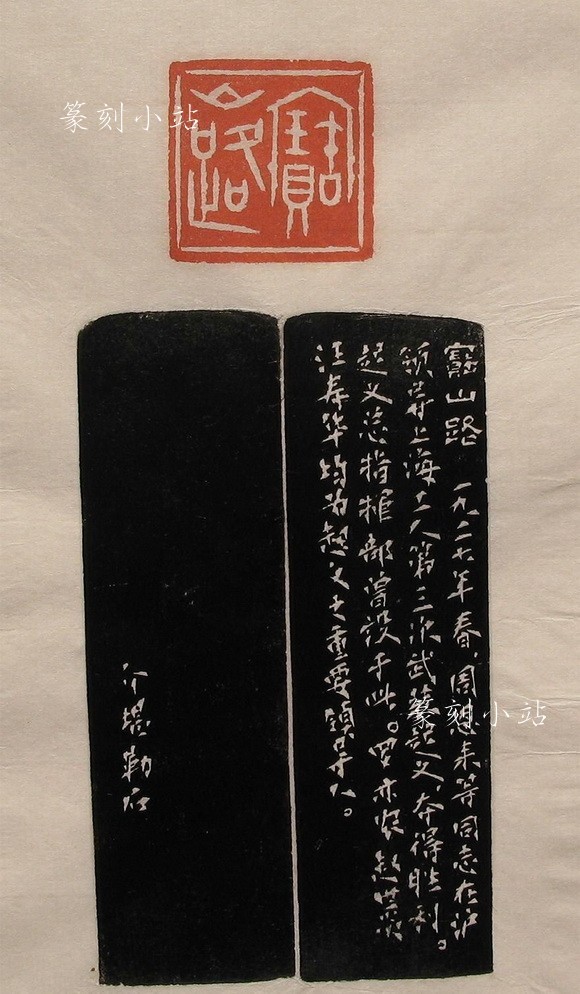 篆刻小站
寶
山路
寶山路 一九二七年春、周恩来等同志在沪
领导上海工人第三次武装起义，夺得胜利。
起义总指挥部曾设于此。罗亦农赵世炎
汪寿华均为起义之重要领导人。
介堪勒石
篆刻小站